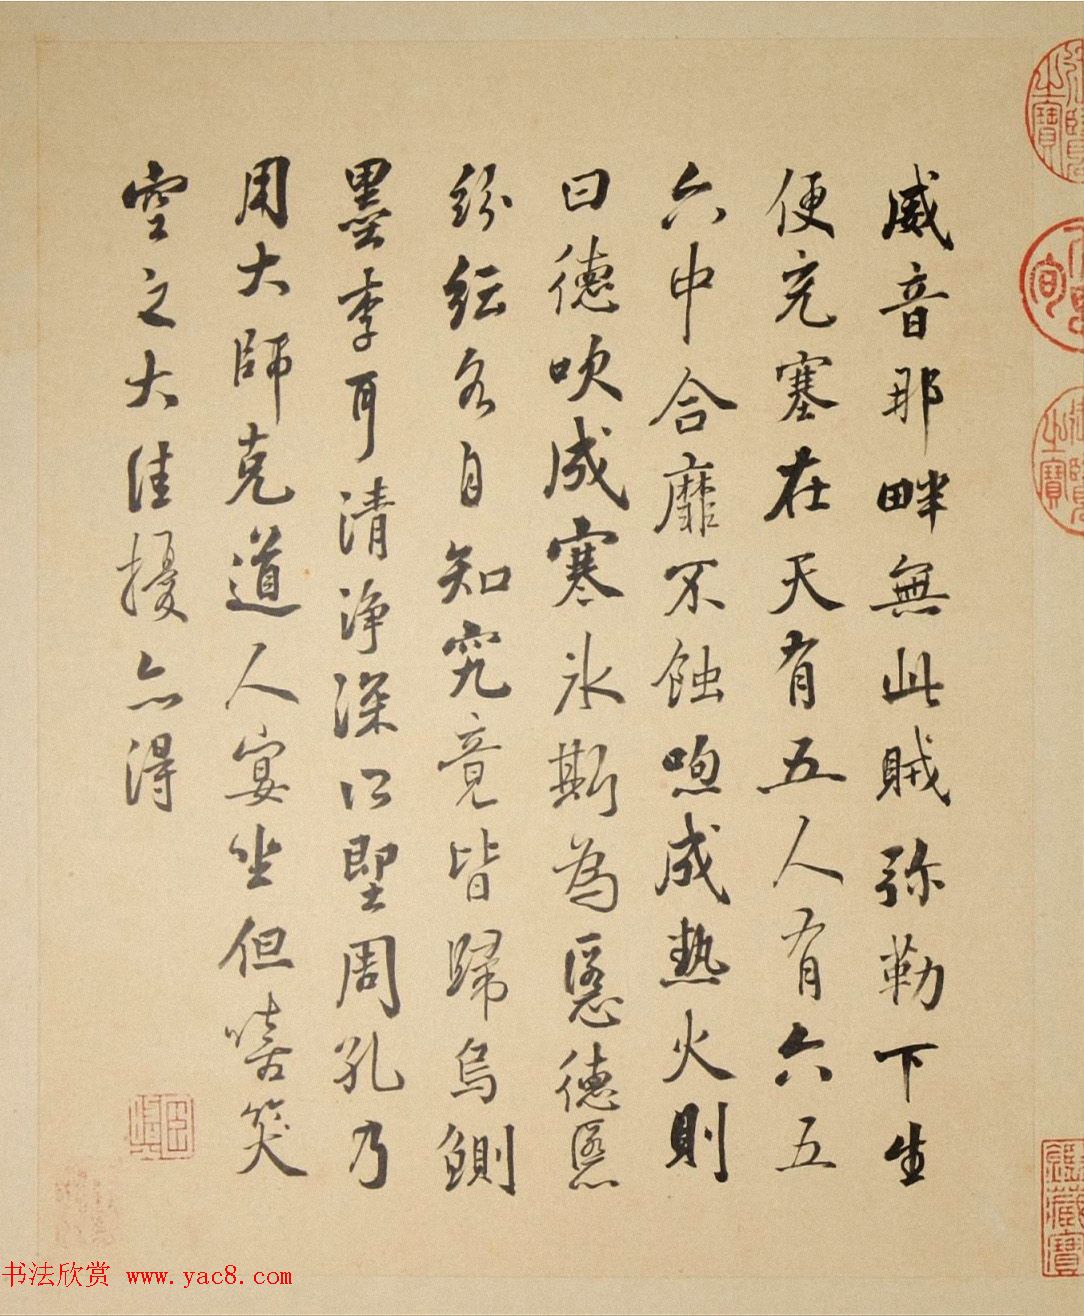 威音那畔無此賊弥勒下生
便充塞在天有五人有六五
六中合靡不蝕喣成熱火則
曰德吹成寒氷斯為慝德慝
紛紜各自知究竟皆歸烏鰂
墨李耳清浄深以堲周孔乃
用大師克道人宴坐但嘻笑
空之大佳擾亦得
鑑藏寶
书法欣赏 www.yac8.com